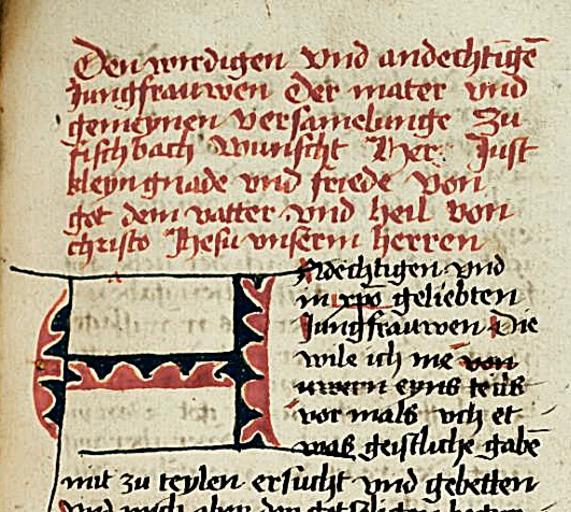 Den wirdigen vnd andechtigē
Jungfrauwen Der mater vnd
gemeynen versamelunge zu
fischbach wunscht Her Just
kleyn gnade vnd friede von
got dem vatter vnd heil von
christo Jhesu vnserm herren
Andechtigen vnd
in xpō geliebten
Jungfrauwen Die
wile ich me von
uwern eyns teils
vor mals vch et
was geistliche gabē
mit zu teylen ersucht vnd gebetten